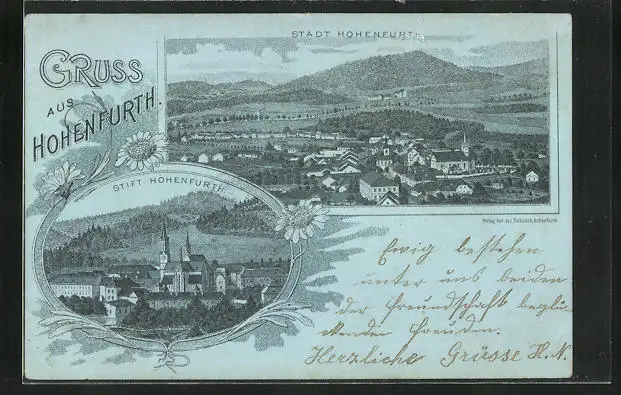 GRUSS
AUS
HOHENFURTH.
STADT HOHENFURTH
STIFT HOHENFURTH.
Verlag von Jos. Hohenfurth.
Ewig bestehen
unter uns beiden
der Freundschaft beglü-
ckenden Freuden.
Herzliche Grüsse H. N.